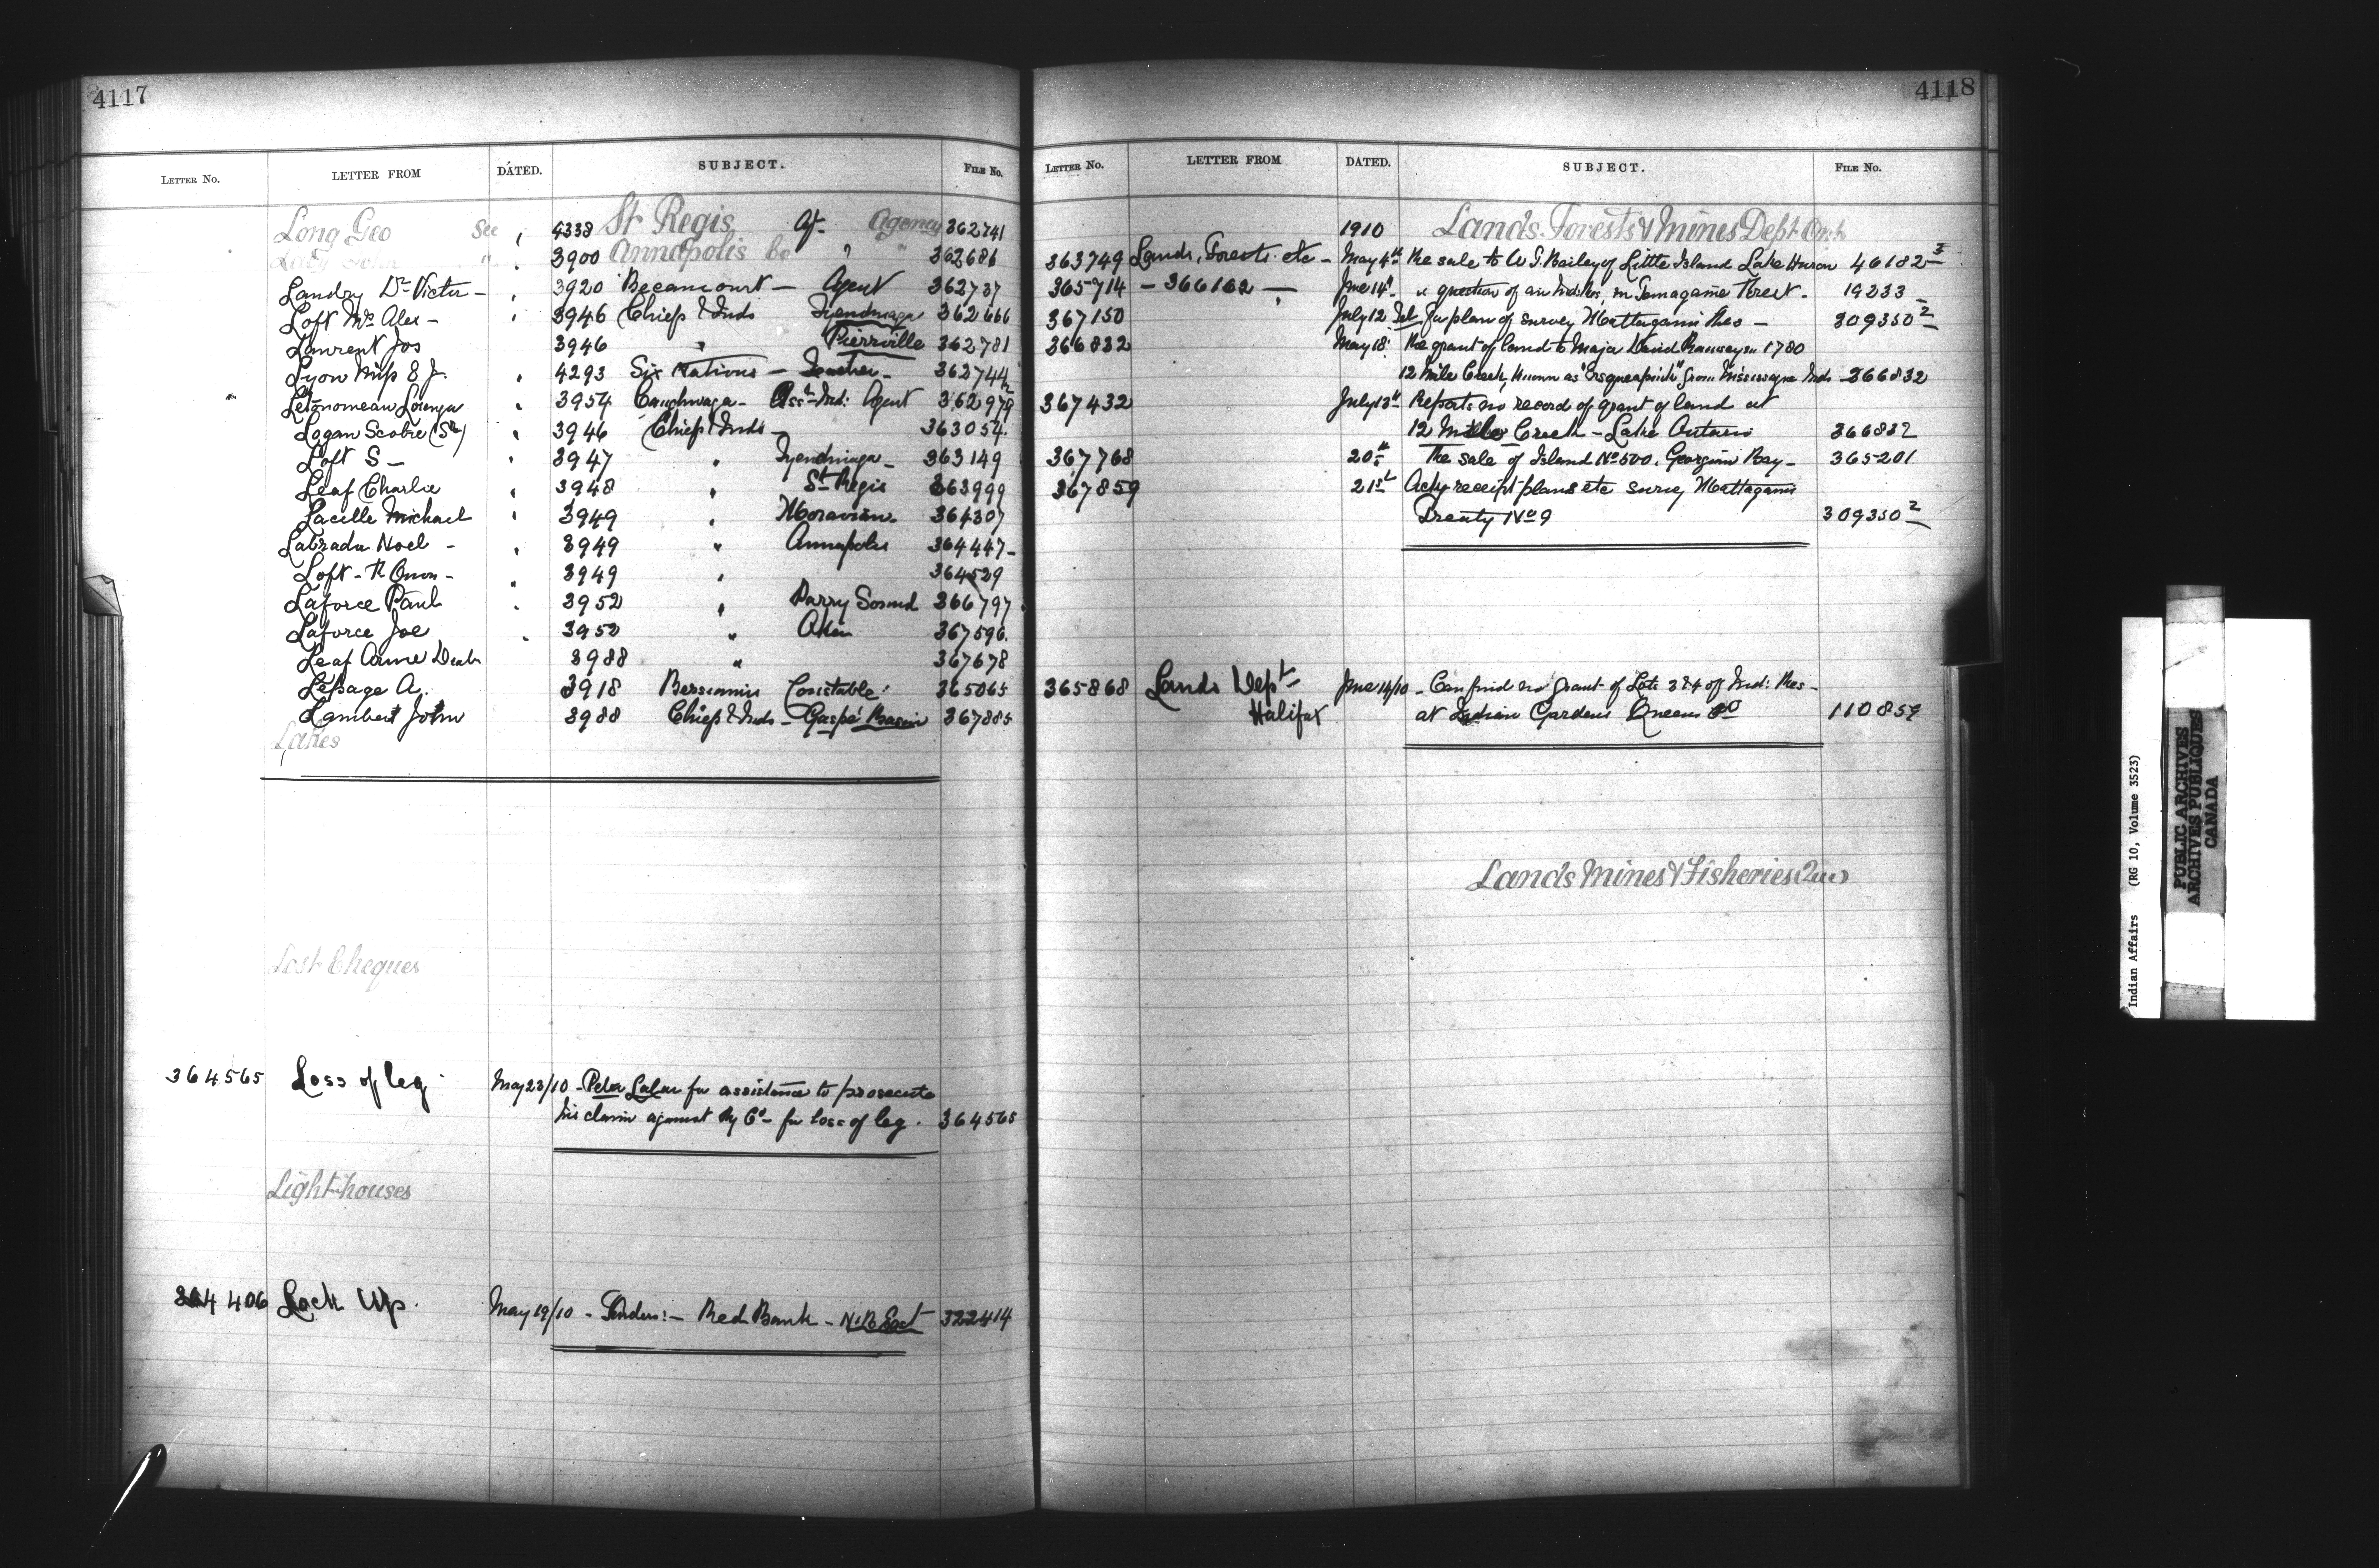 4117
LETTER No. LETTER FROM DATED. SUBJECT. FILE No.
Long Geo See " 4338 St Regis Agency 362741
Lacy John " " 3900 Annapolis Co " " 362686
Landry Dr Victor - " 3920 Becancourt - Agent 362737
Loft Mrs Alex - " 3946 Chiefs & Inds Tyendinaga 362666
Laurent Jos 3946 " Pierrville 362781
Lyon Miss E J. " 4293 Six Nations - Teacher - 362744
" 3954 Caughnwaga - Asst Ind: Agent 362979
Logan Scobie (Sr) " 3946 Chiefs & Inds - 363054
Loft S - " 3947 " Tyendinaga - 363149
Leaf Charlie " 3948 " St Regis 363999
Lacelle Michael " 3949 " Moravian - 364307
Labrada Noel - " 3949 " Annapolis 364447 -
Loft - " 3949 " 364529
Laforce Paul " 3952 " Parry Sound 366797
Laforce Joe " 3952 " 367596
Leaf 3988 " 367678
Lepage A. 3918 Bersimis Constable: 365065
Lambert John 3988 Chiefs & Inds - Gaspé Basin 367885
Lakes
Lost Cheques
364565 Loss of leg. May 23/10 - Peter for assistance to prosecute
his claim against Ry Co - for loss of leg. 364565
Light-houses
364406 Lock Up. May 19/10 - Tenders: - Red Bank - N.B. East 322414
4118
LETTER No. LETTER FROM DATED. SUBJECT. FILE No.
1910 Lands Forests & Mines Dept Ont
363749 Lands, Forests etc - May 4th Re sale to W J. Bailey of Little Island Lake Huron 46182-3
365714 - 366162 - " June 14th " question of an Ind Res, in Temagame Forest - 19233 -
367150 July 12 Tel for plan of survey Mattagami Res - 309350-2
366832 May 18 Re grant of land to Major David Ramsey in 1780
12 Mile Creek, known as from Mississagua Inds - 366832
367432 July 13th Reports no record of grant of land at
12 Mile Creek - Lake Ontario 366832
367768 20th The sale of Island No 500. Georgian Bay - 365201
367859 21st Ackg receipt plans etc survey Mattagami
Treaty No 9 309350-2
365868 Lands Dept June 14/10 - Can find no grant of Lots 3 & 4 of Ind: Res -
Halifax at Indian Gardens Queens Co 110859
Lands Mines & Fisheries (Que)
Indian Affairs (RG 10, Volume 3523)
PUBLIC ARCHIVES
ARCHIVES PUBLIQUES
CANADA